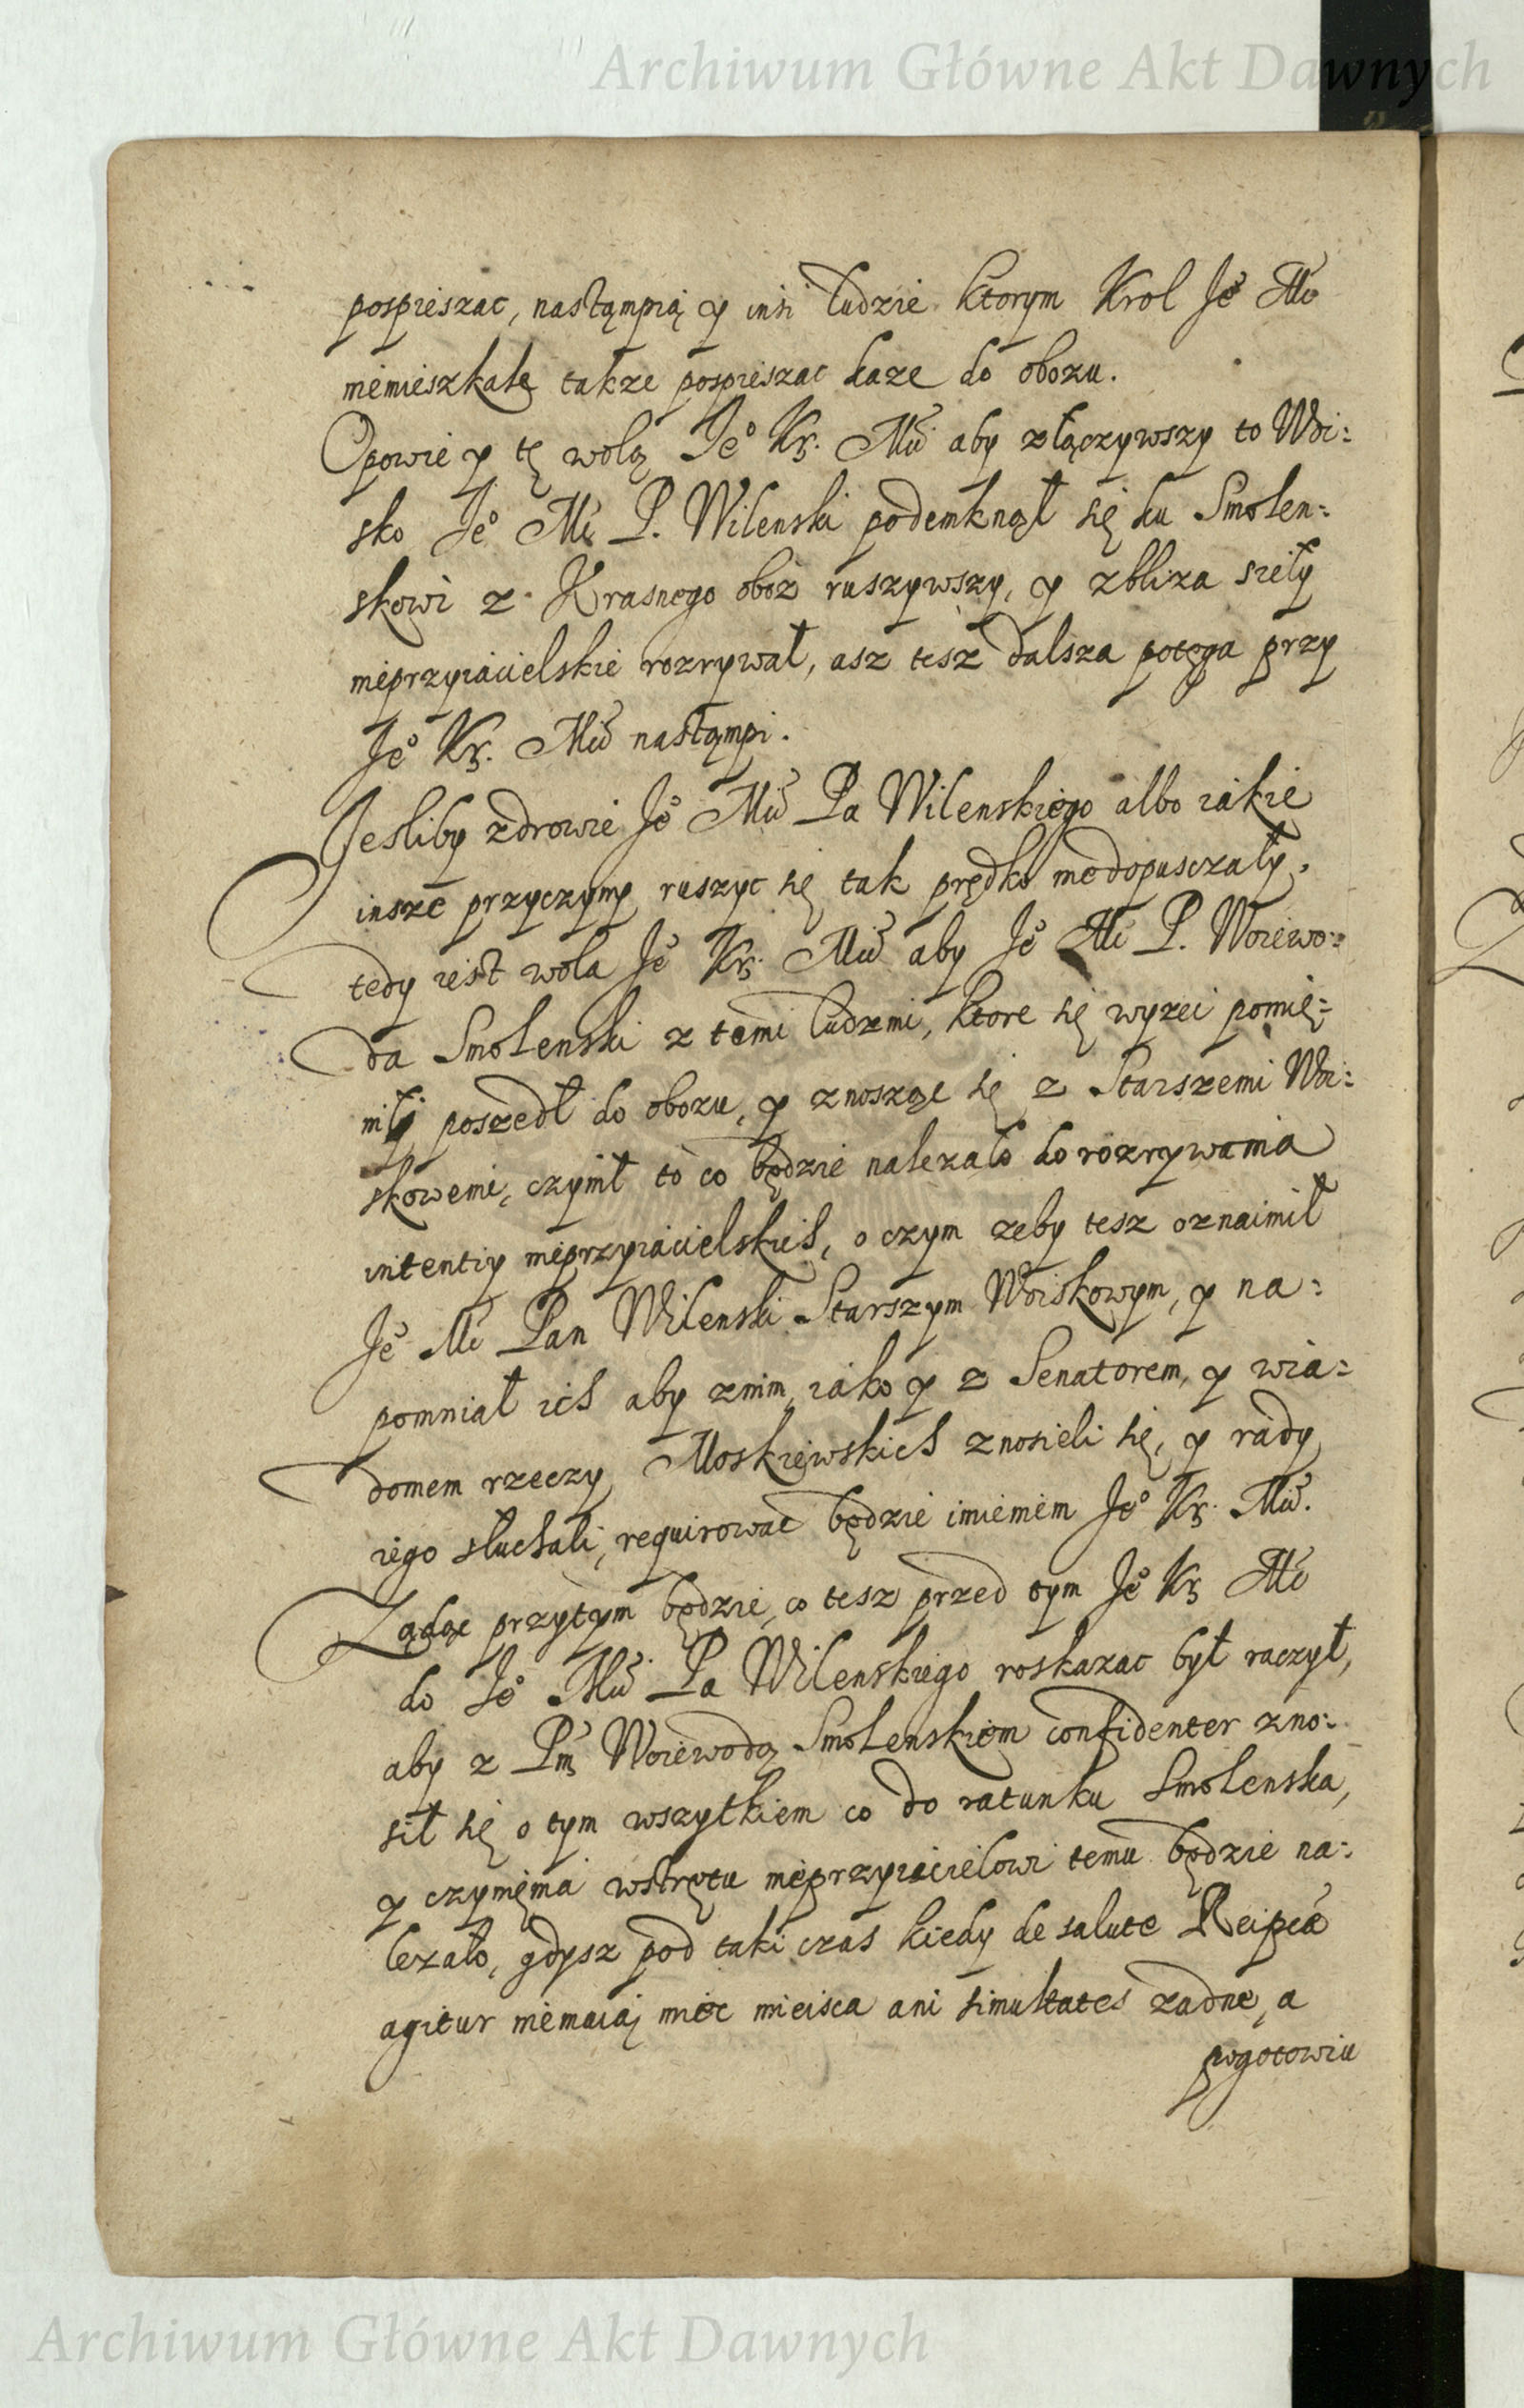 Archiwum Główne Akt Dawnych
pospieszac, nastąmpią y insi ludzie ktorym Krol Je° Mć
niemieszkale takze pospieszac kaze do obozu.
Opowie y tę wolą Je° Kr. Mći aby złączywszy to Woi:
sko Je° Mć P. Wilenski podemknął się ku Smolen:
skowi z Krasnego oboz ruszywszy, y zbliza sieły
nieprzyiacielskie rozrywał, asz tesz dalsza potęga przy
Je° Kr. Mći nastąmpi.
Jesliby zdrowie Je° Mći Pa Wilenskiego albo iakie
insze przyczyny ruszyc się tak prędko niedopusczały,
tedy iest wola Je° Kr. Mći aby Je° Mć P. Woiewo:
da Smolenski z temi ludzmi, ktore się wyzei pomię:
niły poszedł do obozu, y znosząc się z Starszemi Woi:
skowemi, czynił to co będzie nalezało do rozrywania
intentiy nieprzyiacielskich, o czym zeby tesz oznaimił
Je° Mć Pan Wilenski Starszym Woiskowym, y na:
pomniał ich aby znim, iako y z Senatorem, y wia:
domem rzeczy Moskiewskich znosieli się, y rady
iego słuchali, requirowac będzie imieniem Je° Kr. Mći.
Ządac przytym będzie, co tesz przed tym Je° Kr Mć
do Je° Mći Pa Wilenskiego roskazac był raczył,
aby z Pm Woiewodą Smolenskiem confidenter zno:
sił się o tym wszytkiem co do ratunku Smolenska,
y czynięnia wstrętu nieprzyiacielowi temu będzie na:
lezało, gdysz pod taki czas kiedy de salute Reipcæ
agitur niemaią miec mieisca ani simultates zadne, a
pogotowiu
Archiwum Główne Akt Dawnych